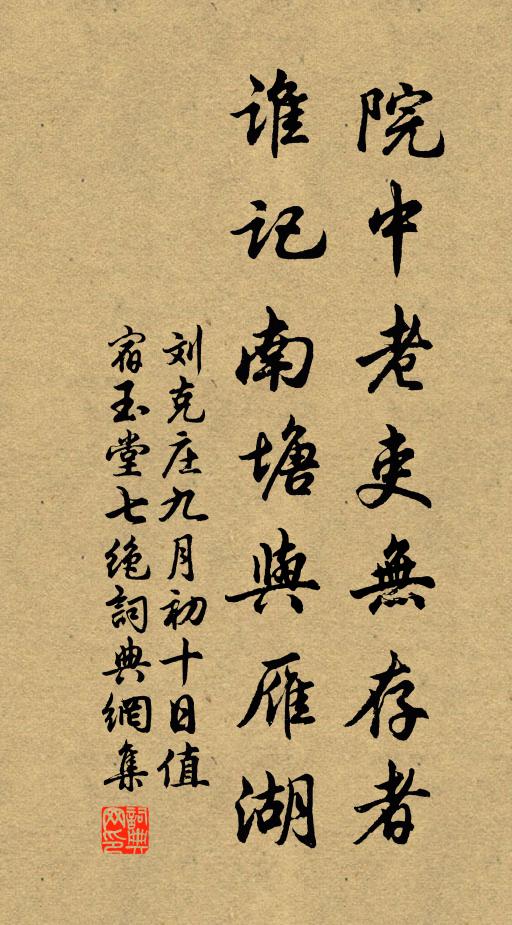 院中老吏無存者
谁记南塘與雁湖
刘克庄九月初十日值
宿玉堂七绝詞典網集
詞典
网印